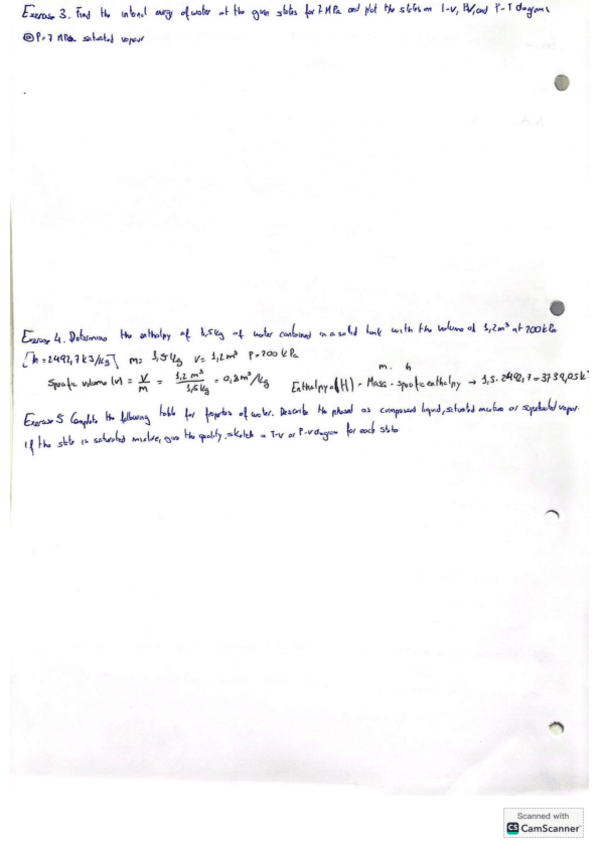 Exercise 3. Find the internal energy of water at the given states for 7 MPa and plot the states on T-v, P-V, and P-T diagrams
@ P=7 MPa saturated vapour
Exercise 4. Determine the enthalpy of 1,5kg of water contained in a solid tank with the volume of 1,2m³ at 200kPa
[h=2492,7kJ/kg] m= 1,5kg V= 1,2m³ P=200 kPa
m. h
Specific volume (v) = V/m = 1,2 m³/1,5kg = 0,8m³/kg Enthalpy (H) = Mass · specific enthalpy → 1,5·2492,7=3739,05k
Exercise 5 Complete the following table for properties of water. Describe the phased as compressed liquid, saturated mixture or superheated vapor.
If the state is saturated mixture, give the quality. sketch a T-v or P-v diagram for each state
Scanned with
CS CamScanner